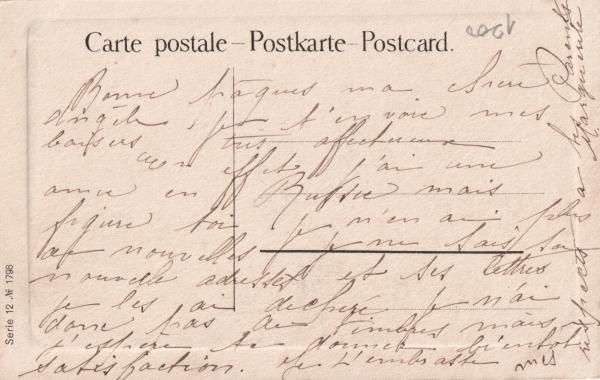 Carte postale – Postkarte – Postcard.
Bonne Pâques ma chère
Angèle je t'envoie mes
baisers très affectueux
en effet j'ai une
amie en Russie mais
figure toi je n'en ai plus
de nouvelles je ne sais sa
nouvelle adresse et ses lettres
je les ai déchiré je n'ai
donc pas de timbres mais
j'espère te donner bientôt
satisfaction. Je t'embrasse
mes
respects a tes Parents
Marguerite
Serie 12 № 1796